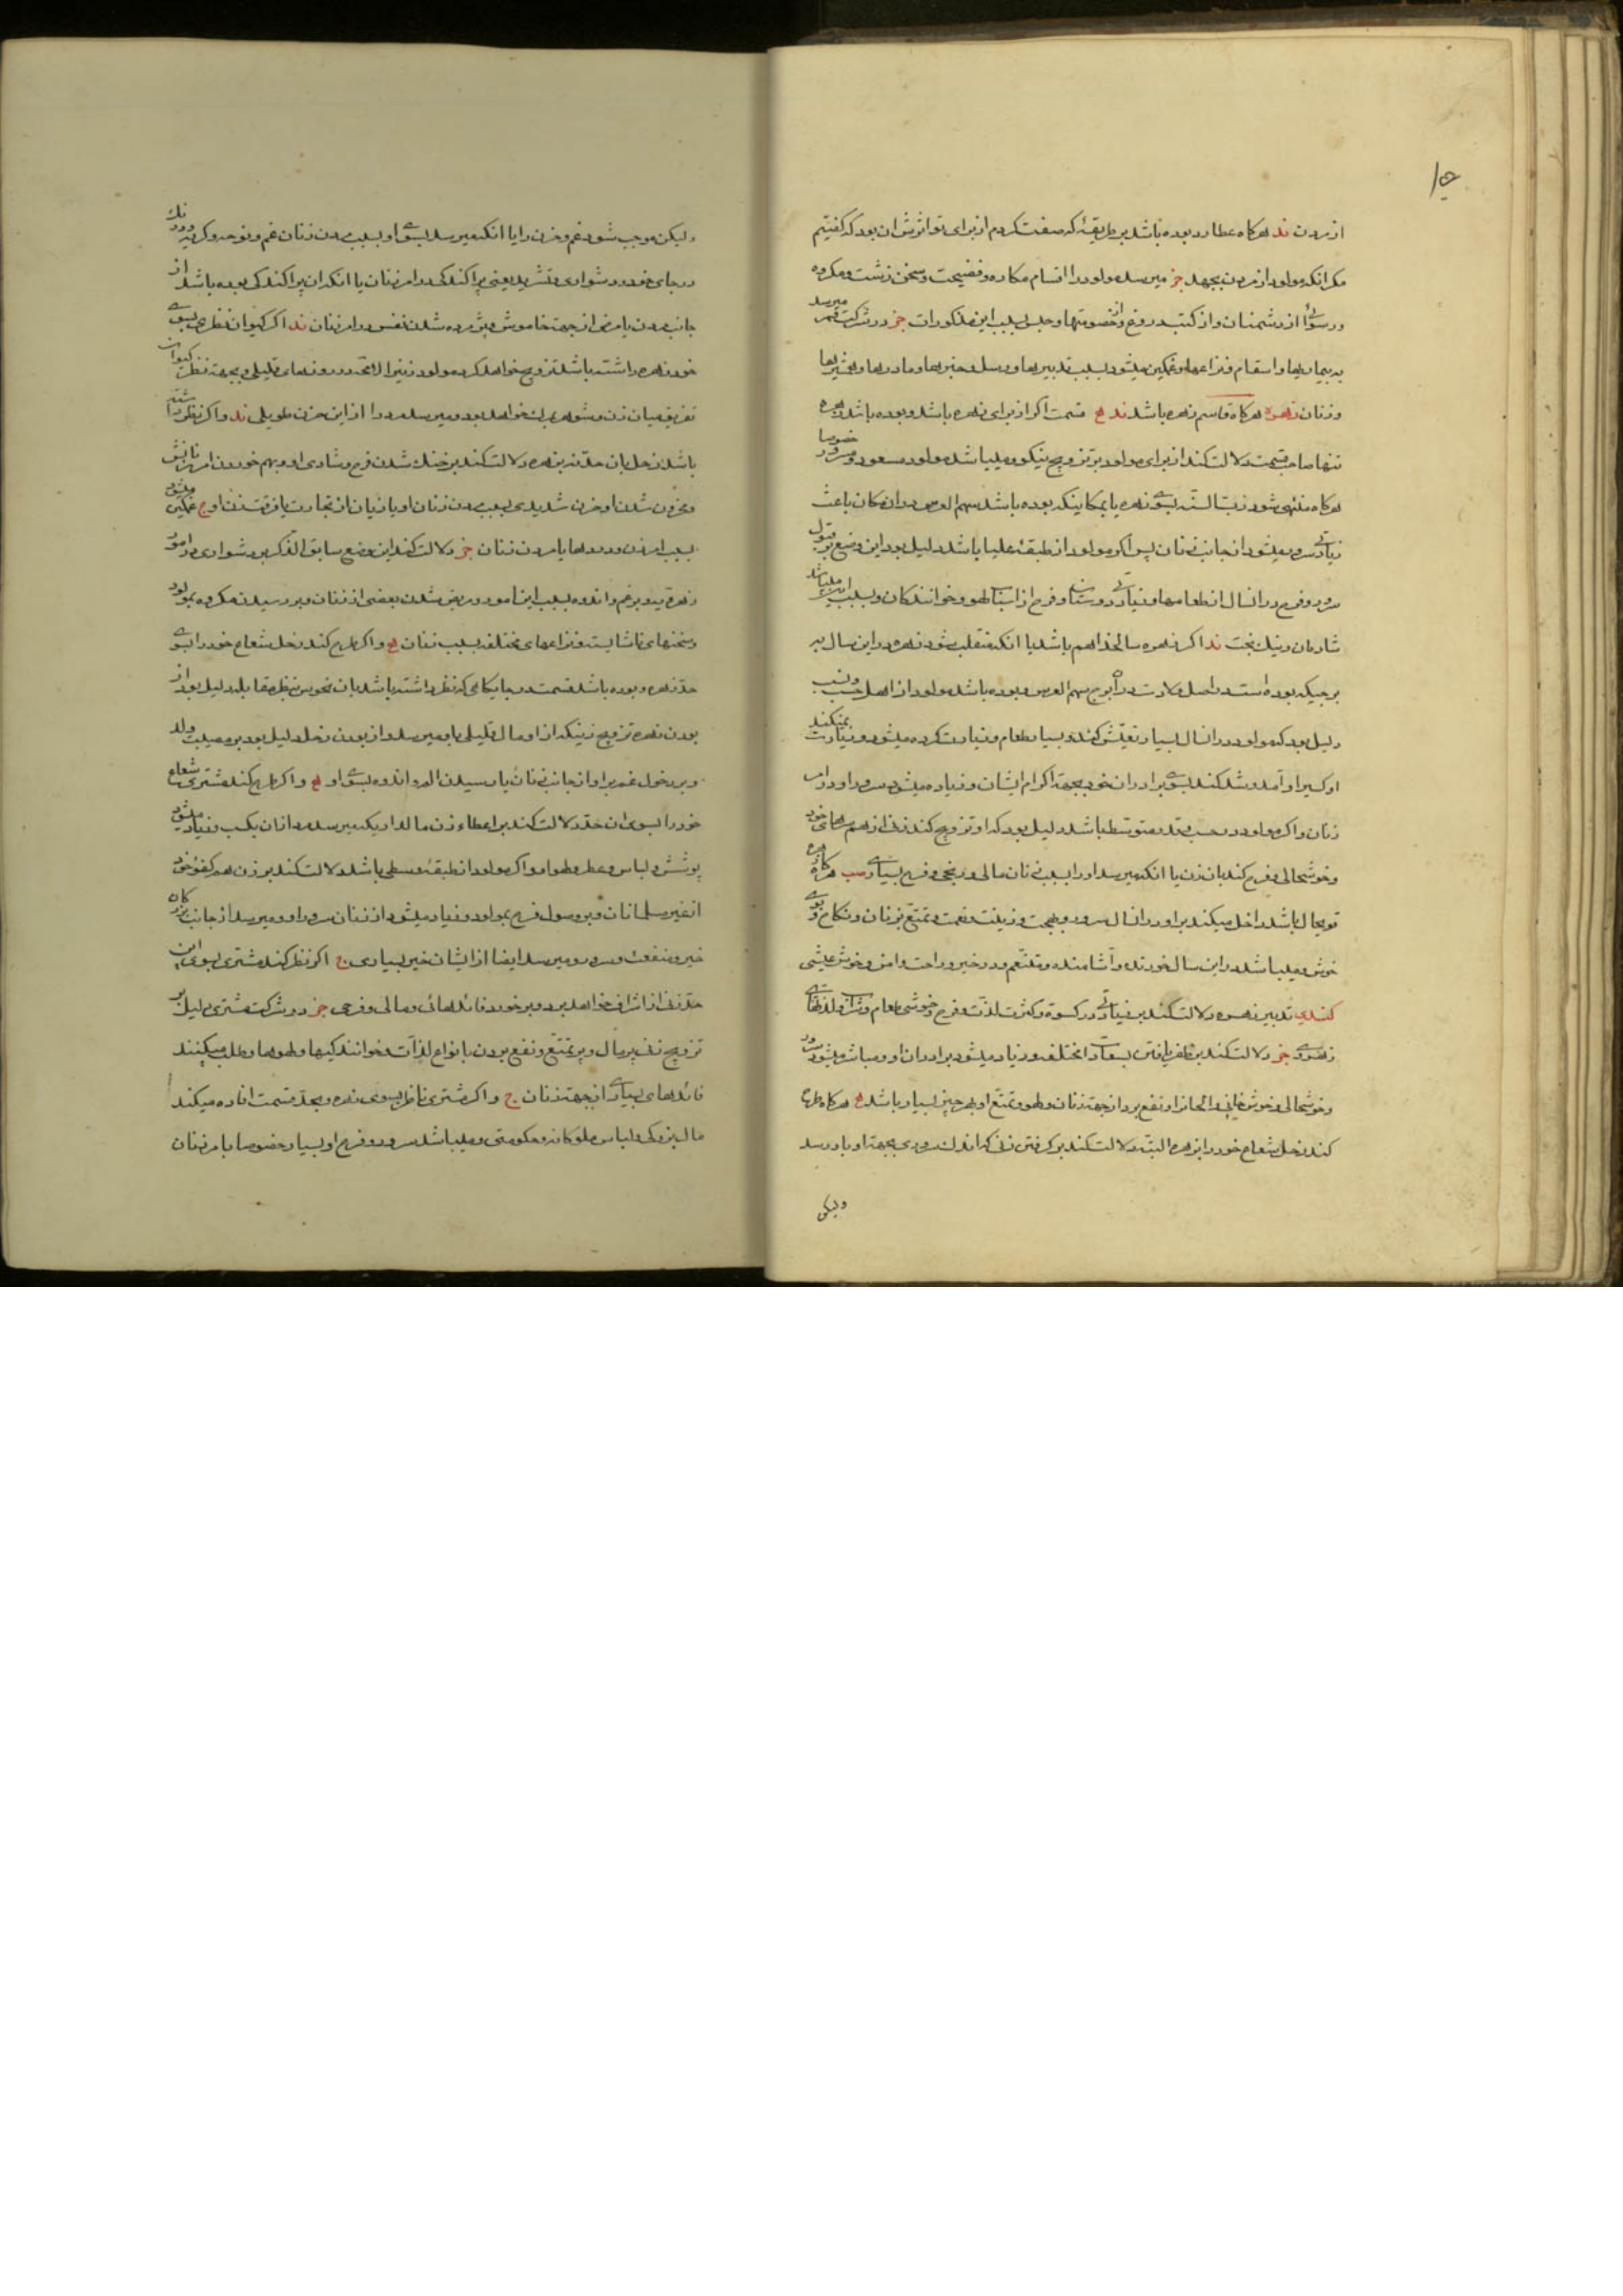 از مردن ند هرکاه عطارد بوده باشد بر طریقهٔ که صفت کردم از برای تو اثرش ان بود که کفتیم
مکر انکه مولود از مردن بجهد جز میرسد مولود را اقسام مکاره و فضیحت و سخن زشت و مکروه
و رسوائی از دشمنان و از کتب دروغ و خصومتها و حبس بسبب این مذکورات جز در شرکت قمر میرسد
به بیماریها و اسقام و نزاعها و غمکین میشود بسبب تدبیرها و رسل و خبرها و مادرها و
و زنان زهره هرکاه قاسم زهره باشد ند قسمت اکر از برای زهره باشد و بوده باشد زهره
تنها صاحب قسمت دلالت کند از برای مولود بر تزویج نیکو و میباشد مولود مسعود و مسرور خصوصا
هرکاه منتهی شود زهره یا بمکانیکه بوده باشد سهم العرس در ان مکان باعث
زیادتی سرور میشود از جانب زنان پس اکر مولود از طبقهٔ علیا باشد دلیل بود این وضع بر قبول
سرور و فرح در انسال از طعامها و زیادتی دوستان و فرح از اسباب لهو و خوانندکان و بسبب این میباشد
شادمان و نیک بخت ند اکر زهره سالخداه هم باشد یا انکه منقلب شود زهره در این سال به
برجیکه بوده است در اصل ولادت در ان برج سهم العرس و بوده باشد مولود از اهل حسب و نسب
دلیل بود که مولود در انسال بسیار تعیش کند و بسیار طعام و زیارت کرده میشود و زیارت نمیکند
او کسیرا و آمد و شد کند بسوی برادران خود بجهة اکرام ایشان و زیاده میشود سرور او در امر
زنان و اکر مولود در حسب و قدر متوسط باشد دلیل بود که او تزویج کند زنی از همسرهای خود
و خوشحالی و فرح کند بان زن یا انکه میرسد او را بسبب زنان مالی و ربحی و فرح بسیاری مب هرکاه زهره
قویحال باشد داخل میکند بر او در انسال سرور و بهجت و زینت و نعمت و تمتع بزنان و نکاح و بوی
خوش و میباشد در این سال خورنده و آشامنده و متنعم و در خیر و راحت و امن و خوش عیشی
کندی تدبیر زهره دلالت کند بر زیادتی در کسوة و کثرت لذت و فرح و خوشی طعام و شراب و لذتهای
زهره جز دلالت کند بر ظفر یافتن بسعادات مختلفه و زیاد میشود برادران او و مباشر میشود سرور
و خوشحالی و خوش خلقی و الحانرا و نفع برد از جهة زنان و لهو و تمتع او بهر چیز بسیار باشد هرکاه طرح
کند زحل شعاع خود را بزهره البته دلالت کند بر کرفتن زنی که اندک سروری بجهة او باو رسد
ولیکن
ولیکن موجب شود غم و حزن را یا انکه میرسد بسوی او بسبب مردن زنان غم و نوحه و کریه و درنک
در جای خود و دشواری و تشرید یعنی پراکندکی در امر زنان یا انکه ان پراکندکی بوده باشد از
جانب مردن یا مرض از جهة خاموش و پژمرده شدن نفس در امر زنان ند اکر کیوان نظر بسوی
خود زهره داشته باشد تزویج خواهد کرد مولود زنیرا الا انکه در روزهای قلیلی و بجهة نظر کیوان
تفریق میان زن و شوهر بزودی خواهد بود و میرسد مرد را از این حزن طویلی ند و اکر نظر داشته
باشد زحل بان حد نه بزهره دلالت کند بر خنک شدن فرح و شادی او و بهم خوردن امر زناشوئی
و محزون شدن او حزن شدیدی بسبب مردن زنان او یا زیان از تجارت یا فرقت زن او ح غمکین میشود
بسبب امر زن و دردها یا مردن زنان جز دلالت کند این وضع سابق الذکر بر دشواری در امور
زهره و بر غم و اندوه بسبب این امور و مریض شدن بعضی از زنان و بر رسیدن مکروه بمولود
و سخنهای ناشایسته و نزاعهای مختلفه بسبب زنان و اکر طرح کند زحل شعاع خود را بسوی
حد زهره و بوده باشد قسمت در جایکاهی که نظر داشته باشد بان نحوس بنظر مقابله دلیل بود از
بودن زهره تزویج زنیکه از او مال قلیلی باو میرسد و از بودن زحل دلیل بود بر مصیبت والد
و بر دخول غم بر او از جانب زنان یا رسیدن الم و اندوه بسوی او و اکر طرح کند مشتری شعاع
خود را بسوی ان حد دلالت کند بر اعطاء زن مالدار یکه میرسد مرد از ان بکسب و زیاد میشود
پوشش و لباس و عطر و لهو او و اکر مولود از طبقهٔ وسطی باشد دلالت کند بر زن
از غیر مسلمانان و بر وصول فرح بمولود و زیاد میشود از زنان سرور او و میرسد از جانب بزرکان
خیر و منفعت و سرور و میرسد ایضا از ایشان خیر بسیاری اکر نظر کند مشتری بسوی این
حد زنی از اشراف خواهد برد و برخورد فائدهائی و مالی و فرحی جز در شرکت مشتری دلیل بر
تزویج زنی پرمال و بر تمتع و نفع بردن بانواع لذات و خوانندکیها و لهوها و طلب میکنند
فائدهای بسیاری از جهة زنان ح و اکر مشتری ناظر بسوی زهره و بحد قسمت افاده میکند
مال بزرکی و لباس ملوکانه و حکومتی و میباشد سرور و فرح او بسیار خصوصا با مر زنان